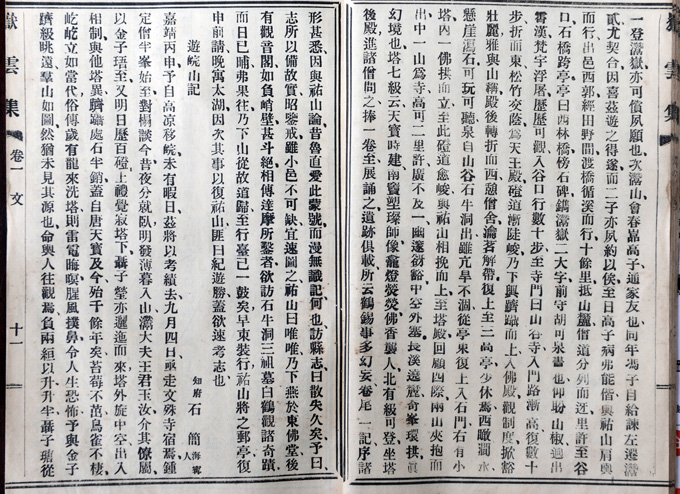 嶽雲集
一登灊嶽亦可償夙願也次灊山會春晶高子通家友也同年馮子目給諫左遷灊
貳尤契合因喜茲遊之得遂而二子亦夙約以俟至日高子病弗能偕與祐山肩輿
而行出邑西郭經田野間渡橋循溪而行十餘里抵山麓僧道分列而迓里許至谷
口石橋跨亭亭曰西林橋傍石碑鐫灊嶽二大字前守胡可泉書也仰眎山椒迴出
霄漢梵宇浮屠歷歷可觀入谷口行數十步至寺門曰山谷寺入門路漸高復數十
步折而東松竹交蔭為天王殿磴道漸陡峻乃下輿躋躡而上入佛殿觀制度掀豁
壯麗雅與山稱殿後轉折而西憩僧舍瀹茗解帶復上至三高亭少休焉西瞰澗水
懸崖瀉石可玩可聽泉自山谷石牛洞出雖亢旱不涸從亭東復上入石門右有小
塔內一佛拱而立至此磴道愈峻與祐山相挽而上至塔殿回顧四際兩山夾抱而
出中一山為寺高可二里許廣不及一幽邃窈豁中空外塞長溪遶麗奇峯環拱真
幻境也塔七級云天寶時建南竇塑璨師像龕燈熒熒佛香襲人北有級可登塔迤
後殿進諸僧問之捧一卷至展誦之遺跡俱載所云鶴錫事多幻妄卷尾一記序諸
形甚悉因與祐山論昔魯直愛此蒙號而漫無識記何也訪縣志曰散失久矣予曰
志所以備故實昭鑒戒雖小邑不可缺宜速圖之祐山曰唯唯乃下燕於東佛堂後
有觀音閣如負峭壁甚斗絕相傳達摩所鑿者欲訪石牛洞三祖墓白鶴觀諸奇蹟
而日已晡弗果往乃下山從故道歸至行臺已一鼓矣早束裝行祐山將之郵亭復
申前請晚寓太湖因次其事以復祐山匪曰紀遊勝蓋欲速考志也
遊皖山記
知府石簡海寧人
嘉靖丙申予自高凉移皖未有暇日茲將以考績去九月四日亟走文殊寺宿焉鍾
定僧半峯始至對榻談今昔夜分就臥明發薄暮入山灊大夫王君玉汝介其僚屬
以金子珸至又明日歷百磴上禮覺寂塔下聶子瑩亦邐迤而來塔外旋中空出入
相制與他塔異躋巔處石半銷蓋自唐天寶及今殆千餘年矣苔莓不茁鳥雀不棲
屹屹立如當代俗傳歲有龍來洗塔則雷電晦暝腥風撲鼻令人生恐怖予與金子
躋級眺遠羣山如圖然猶未見其源也命輿人往觀焉負兩絙以升升半聶子瑭從
嶽雲集
卷一 文
十一